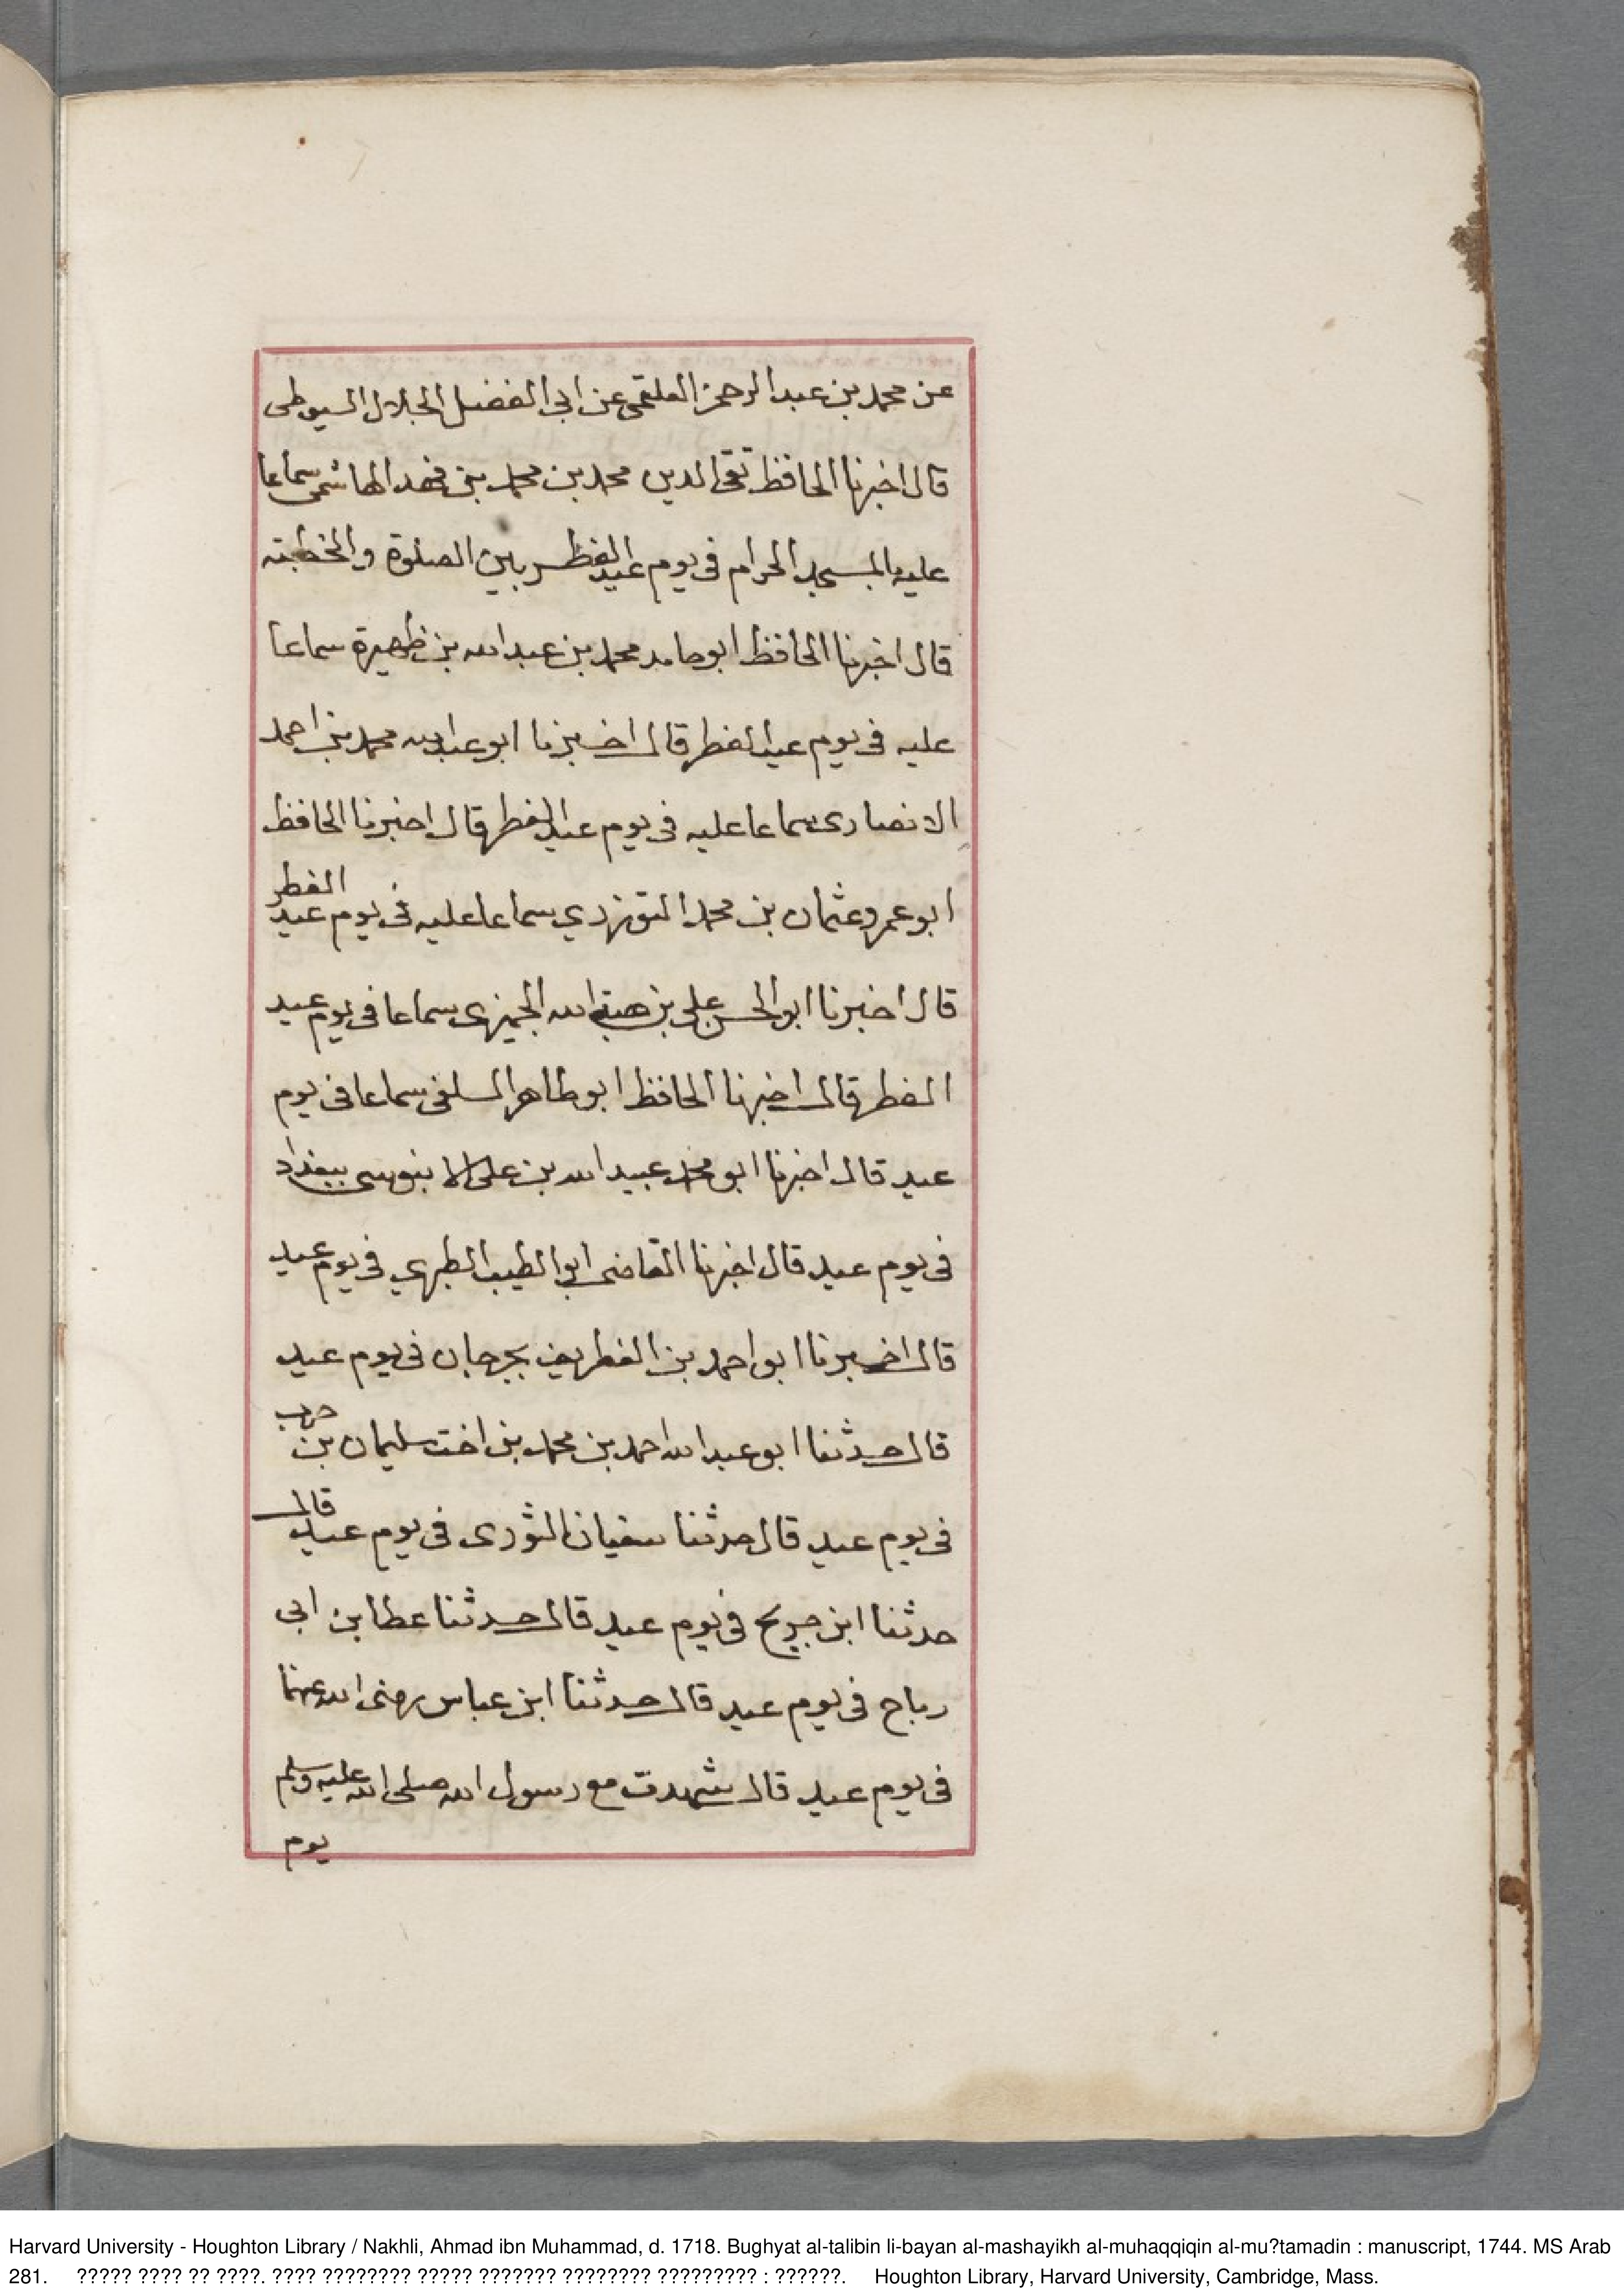 عن محمد بن عبد الرحمن العلقمى عن ابى الفضل الجلال السيوطى
قال اخبرنا الحافظ تقى الدين محمد بن محمد بن فهد الهاشمى سماعا
عليه بالمسجد الحرام فى يوم عيد الفطر بين الصلوة والخطبته
قال اخبرنا الحافظ ابو حامد محمد بن عبد الله بن ظهيرة سماعا
عليه فى يوم عيد الفطر قال اخبرنا ابو عبد الله محمد بن احمد
الانصارى سماعا عليه فى يوم عيد الفطر قال اخبرنا الحافظ
ابو عمرو عثمان بن محمد التوزري سماعا عليه فى يوم عيد الفطر
قال اخبرنا ابو الحسن على بن هبة الله الجميزى سماعا فى يوم عيد
الفطر قال اخبرنا الحافظ ابو طاهر السلفى سماعا فى يوم
عيد قال اخبرنا ابو محمد عبيد الله بن على الابنوسى ببغداد
فى يوم عيد قال اخبرنا القاضى ابو الطيب الطبري فى يوم عيد
قال اخبرنا ابو احمد بن الغطريف بجرجان فى يوم عيد
قال حدثنا ابو عبد الله احمد بن محمد بن اخت سليمان بن حرب
فى يوم عيد قال حدثنا سفيان الثورى فى يوم عيد قال
حدثنا ابن جريج فى يوم عيد قال حدثنا عطا بن ابى
رباح فى يوم عيد قال حدثنا ابن عباس رضى الله عنهما
فى يوم عيد قال شهدت مع رسول الله صلى الله عليه وسلم
يوم
Harvard University - Houghton Library / Nakhli, Ahmad ibn Muhammad, d. 1718. Bughyat al-talibin li-bayan al-mashayikh al-muhaqqiqin al-mu?tamadin : manuscript, 1744. MS Arab
281. ????? ???? ?? ????. ???? ???????? ????? ??????? ???????? ????????? : ??????. Houghton Library, Harvard University, Cambridge, Mass.